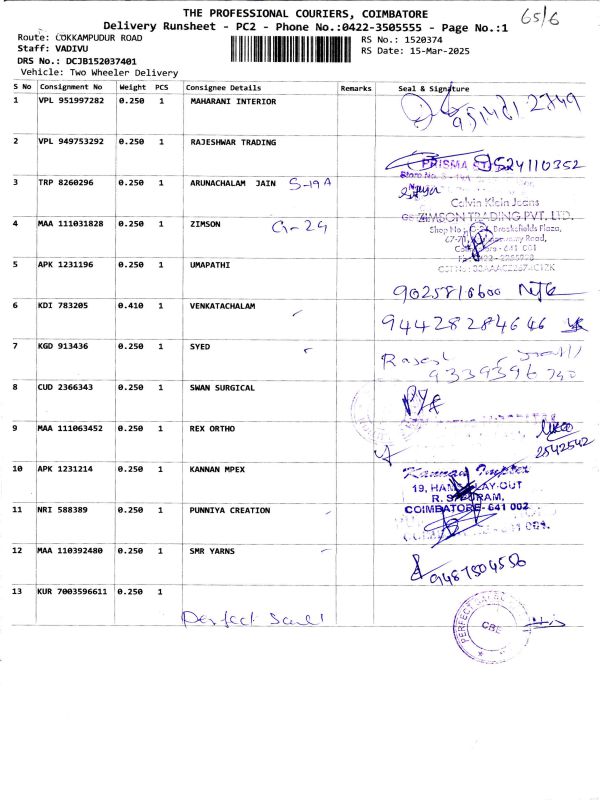 THE PROFESSIONAL COURIERS, COIMBATORE
65/6
Delivery Runsheet - PC2 - Phone No.:0422-3505555 - Page No.:1
Route: COKKAMPUDUR ROAD
RS No.: 1520374
Staff: VADIVU
RS Date: 15-Mar-2025
DRS No.: DCJB152037401
Vehicle: Two Wheeler Delivery
S No Consignment No Weight PCS Consignee Details Remarks Seal & Signature
1 VPL 951997282 0.250 1 MAHARANI INTERIOR
2 VPL 949753292 0.250 1 RAJESHWAR TRADING
PRISMA
9524110352
3 TRP 8260296 0.250 1 ARUNACHALAM JAIN S-19A
Calvin Klein Jeans
4 MAA 111031828 0.250 1 ZIMSON G-29
ZIMSON TRADING PVT. LTD.
Shop No Brookefields Plaza,
Road,
641 001
5 APK 1231196 0.250 1 UMAPATHI
9025816600
6 KDI 783205 0.410 1 VENKATACHALAM
9442828464
7 KGD 913436 0.250 1 SYED
9339396740
8 CUD 2366343 0.250 1 SWAN SURGICAL
9 MAA 111063452 0.250 1 REX ORTHO
2542542
10 APK 1231214 0.250 1 KANNAN MPEX
Kannan Impex
19, LAY-OUT
R. S. PURAM,
COIMBATORE-641 002
11 NRI 588389 0.250 1 PUNNIYA CREATION
12 MAA 110392480 0.250 1 SMR YARNS
9487504556
13 KUR 7003596611 0.250 1
Perfect
PERFECT
CBE